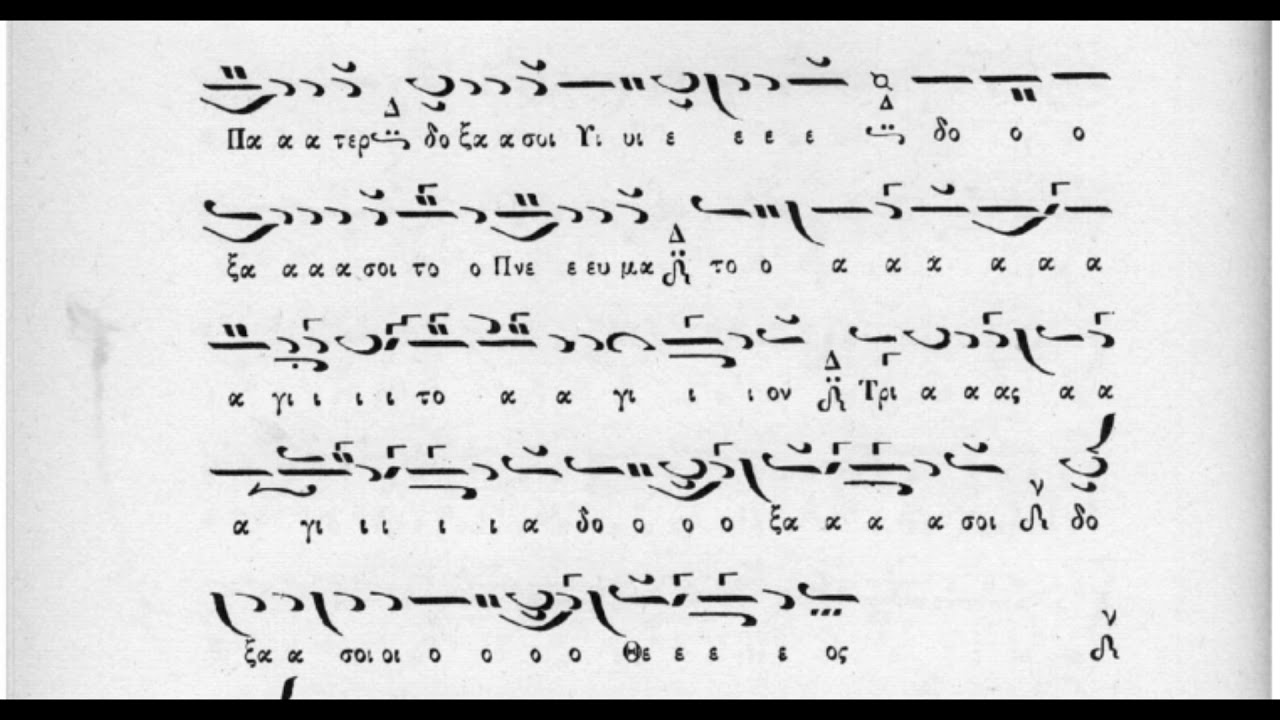 Πα α α τερ Δ δο ξα α σοι Υι υι ε ε ε ε Δ δο ο ο
ξα α α α σοι το ο Πνε ε ευ μα Δ το ο α α α α α α
α γι ι ι ι το α α γι ι ι ον Δ Τρι α α ας α α
α γι ι ι ι ι α δο ο ο ο ξα α α α σοι ν δο
ξα α σοι οι ο ο ο ο Θε ε ε ε ος ν